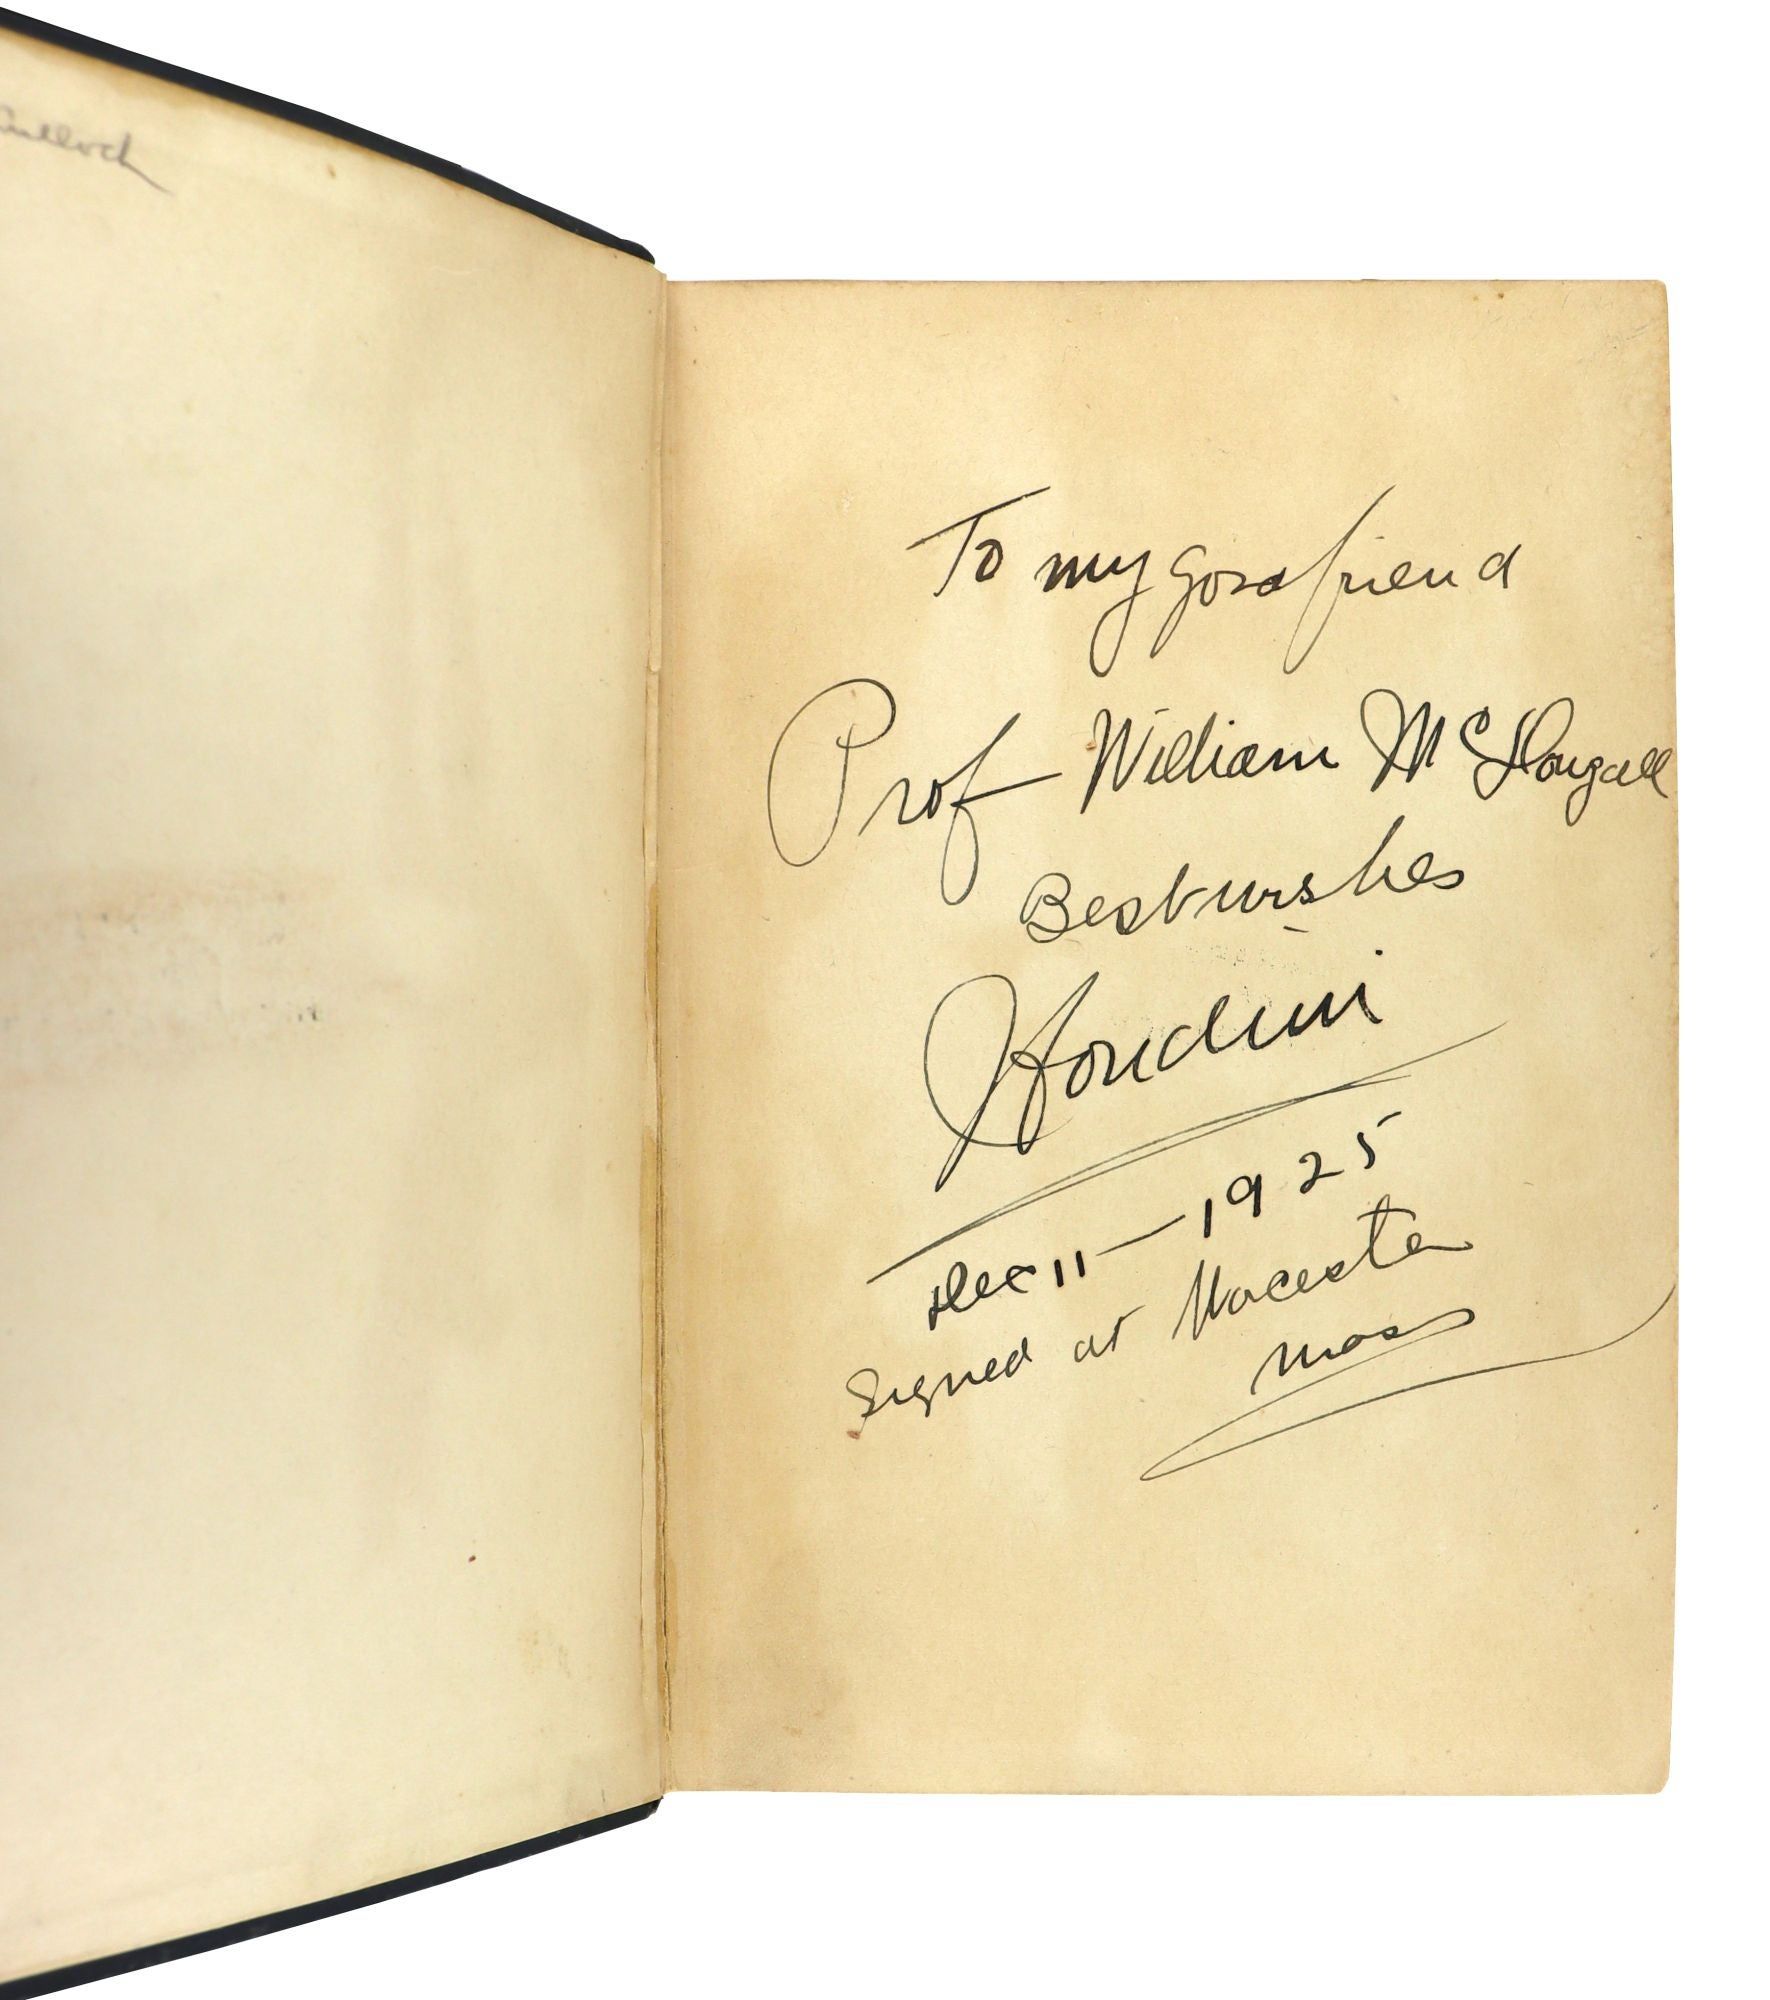 To my good friend
Prof William McDougall
Best wishes
Houdini
Dec 11 - 1925
Signed at Worcester
Mass